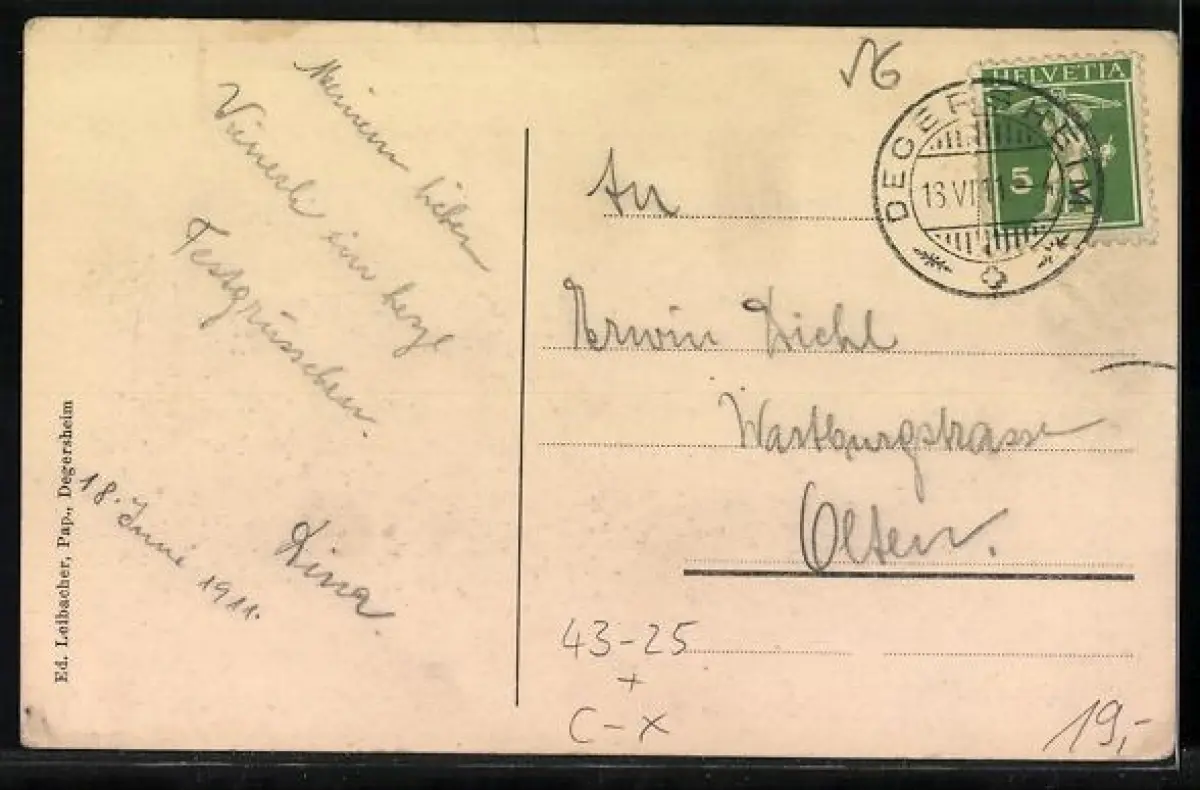 Meinem lieben
ein herzl
Festgrüsschen.
Lina
18. Juni 1911.
Ed. Leibacher, Pap., Degersheim
HELVETIA
5
DEGERSHEIM
An
Erwin Diehl
Wartburgstrasse
Olten.
43-25
+
C-X
19,-